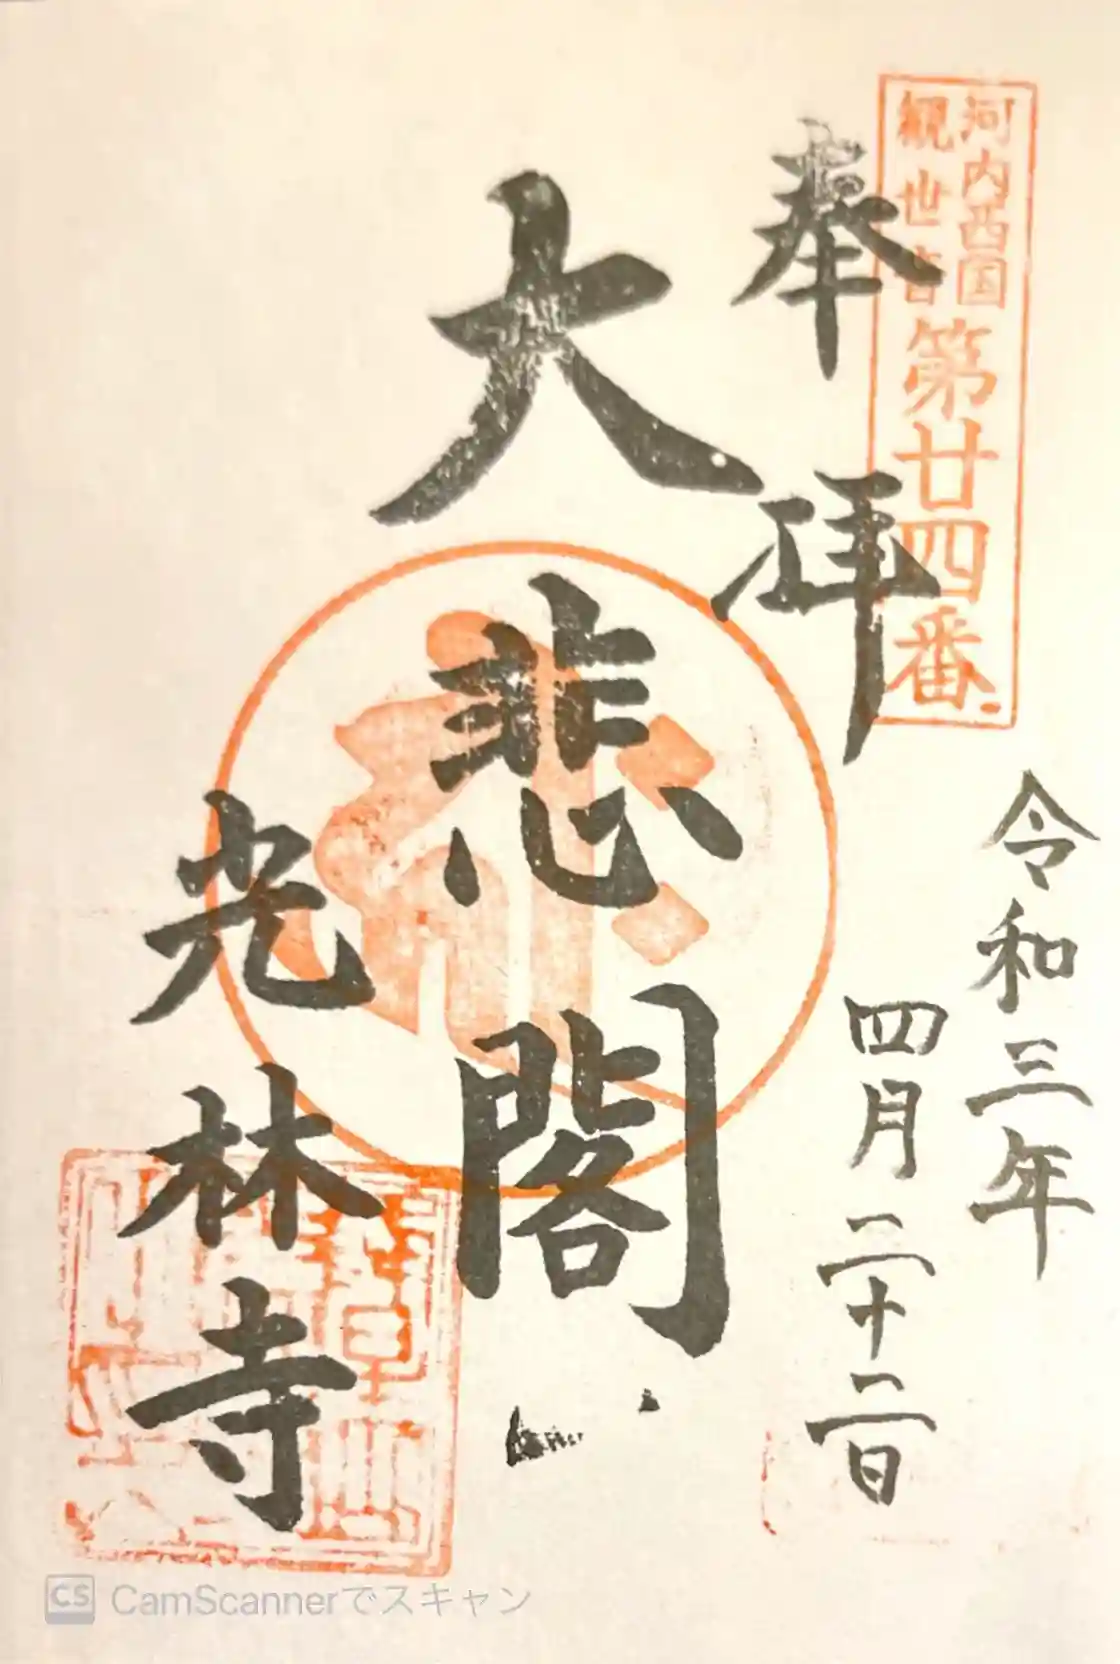 河内西国
観世音
第廿四番
奉拝
令和三年
四月二十二日
大悲閣
光林寺
CS CamScannerでスキャン